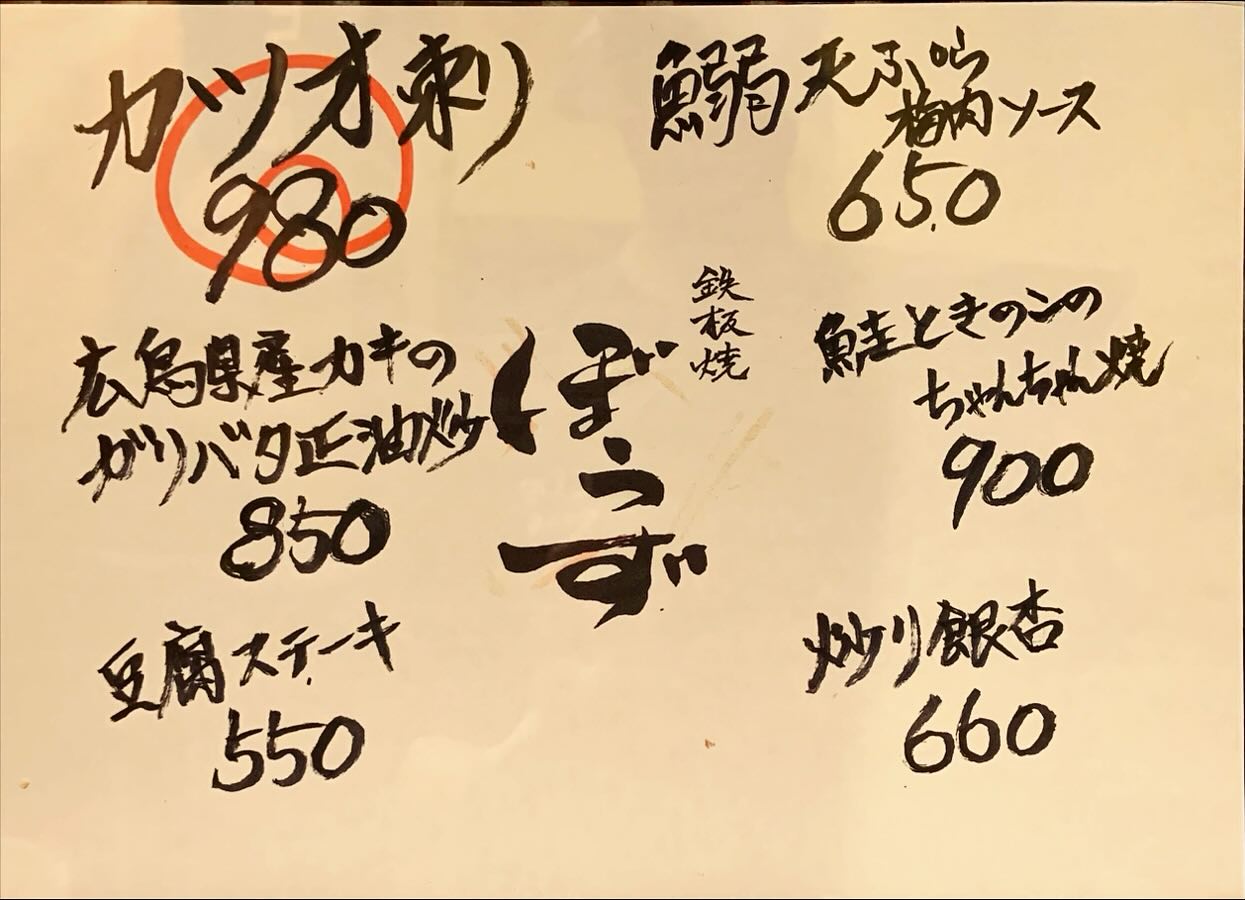 カツオ刺り
980
広島県産カキの
ガリバタ正油炒め
850
豆腐ステーキ
550
鉄板焼
ぼうず
鰯天ぷら
梅肉ソース
650
鮭ときのこの
ちゃんちゃん焼
900
炒り銀杏
660